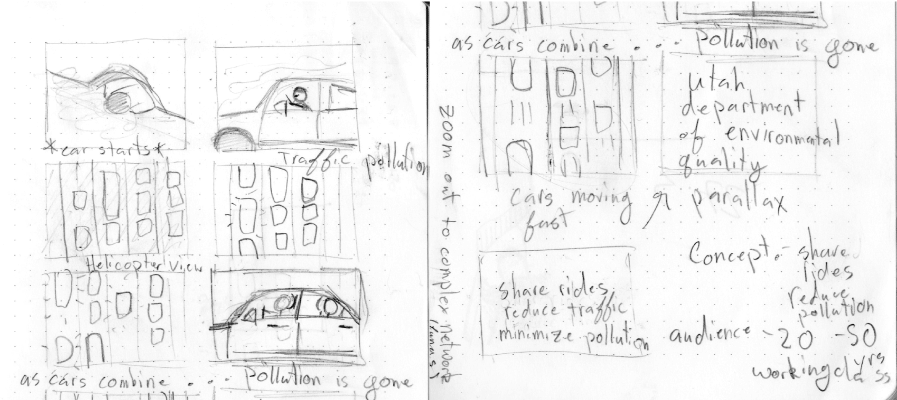 *car starts*
Traffic pollution
Helicoptur View
as cars combine . . . pollution is gone
zoom out to complex network
as cars combine . . . pollution is gone
Utah
department
of environmatal
quality
Cars moving
fast
parallax
share rides,
reduce traffic
minimize pollution
Concept - share
rides
reduce
pollution
audience - 20 - 50
yrs
working class